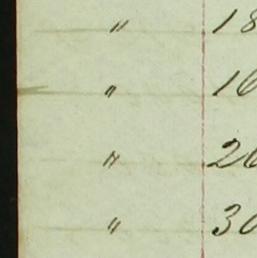 " 18
" 16
" 26
" 30